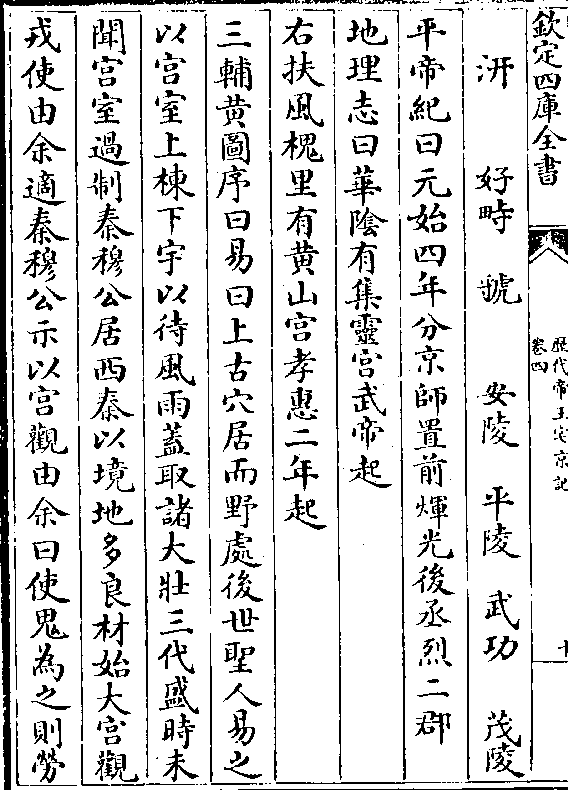 欽定四庫全書
歷代帝王宅京記
卷四
十
汧 好畤 虢 安陵 平陵 武功 茂陵
平帝紀曰元始四年分京師置前煇光後丞烈二郡
地理志曰華陰有集靈宫武帝起
右扶風槐里有黄山宫孝惠二年起
三輔黄圖序曰易曰上古穴居而野處後世聖人易之
以宫室上棟下宇以待風雨蓋取諸大壯三代盛時未
聞宫室過制秦穆公居西秦以境地多良材始大宫觀
戎使由余適秦穆公示以宫觀由余曰使鬼為之則勞